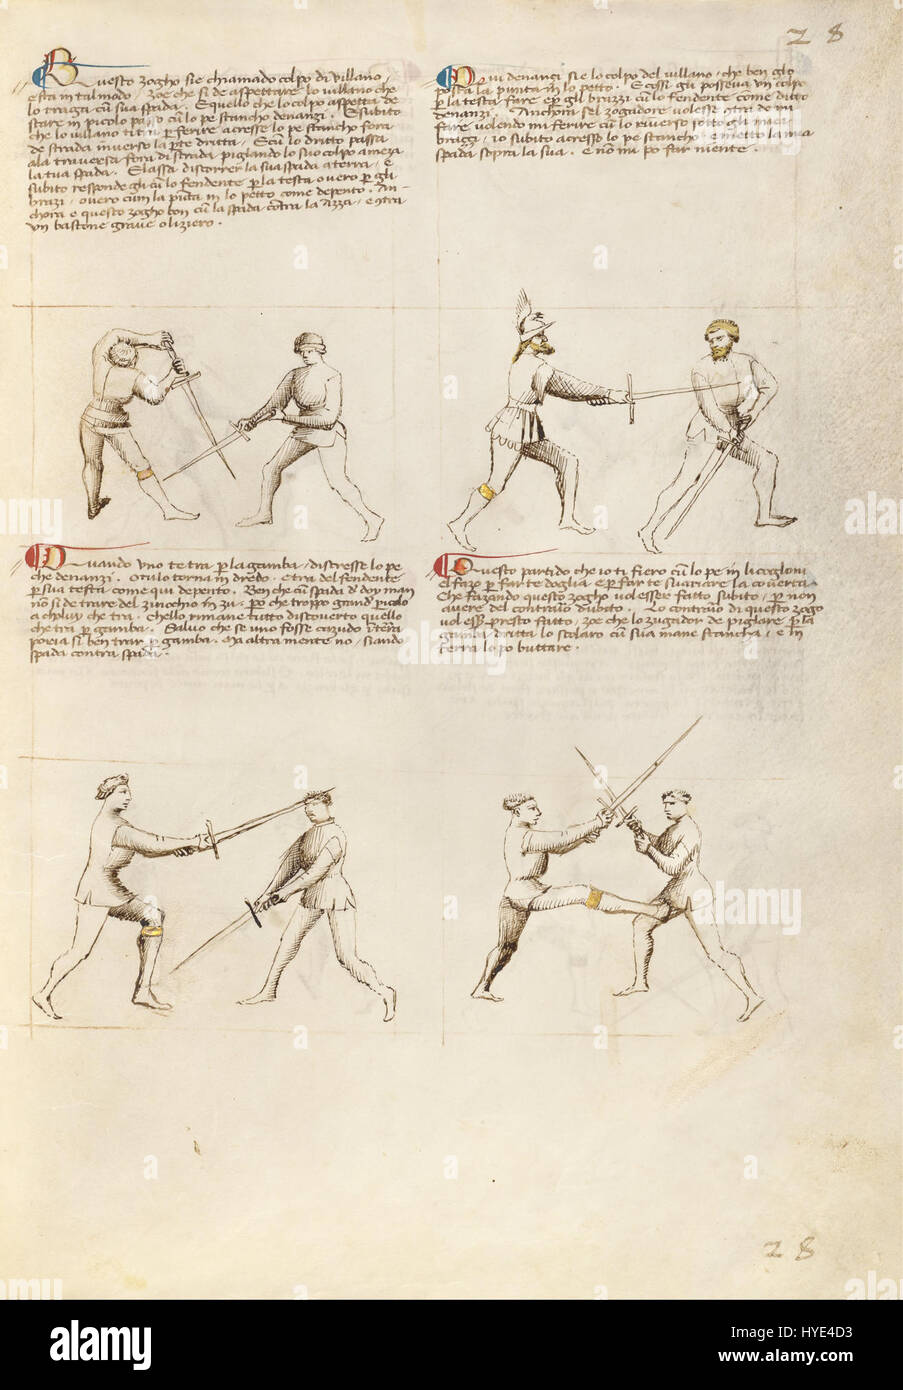 28
Questo zogho sie chiamado colpo di villano,
e sta in tal modo, zoe che si de aspettare lo villano che
lo traga cũ sua spada. E quello che lo colpo aspetta de
stare in picolo passo cũ lo pe stancho denanzi. E subito
che lo villano ti tra p ferire acresse lo pe stancho fora
de strada inverso la pte dritta. E cũ lo dritto passa
ala traversa fora di strada piglando lo suo colpo a meza
la tua spada. E lassa discorrer la sua spada a terra, e
subito responde gli cũ lo fendente p la testa overo p gli
brazi, overo cum la pũta in lo petto come depento. An-
chora e questo zogho bon cũ la spada cõtra la azza, e cõtra
un bastone grave o liziero.
Qui denanzi si e lo colpo del villano, che ben glo
posta la punta in lo petto. E cossi gli posseva un colpo
p la testa fare e p gli brazzi cũ lo fendente come ditto
denanzi. Anchora sel zogadore volesse cõtra di me
fare volendo mi ferire cũ lo riverso sotto gli mie
brazzi, io subito acresso lo pe stancho e metto la mia
spada sopra la sua. e nõ mi po far niente.
Quando uno te tra p la gamba, discresse lo pe
che denanzi. o tu lo torna in dredo. e tra del fendente
p sua testa come qui depento. Ben che cũ spada d doy man
nõ si de trare del zinochio in zu. p che troppo grand piculo
a choluy che tra. Chello rimane tutto discoverto quello
che tra p gamba. Salvo che se uno fosse cazudo ĩ terra
poria si ben trar p gamba. Ma altra mente no, siando
spada contra spada.
Questo partido che io ti fiero cũ lo pe in li coglioni
el fazo p far te doglia e p far te svariare la coverta.
Che fazando questo zogho vol esser fatto subito, p non
avere del contrario dubito. Lo contrario di questo zogo
vol esser presto fatto, zoe che lo zugador de piglare p la
gamba dritta lo scolaro cũ sua mane stancha, e in
terra lo po buttare.
28
alamy stock photo
HYE4D3